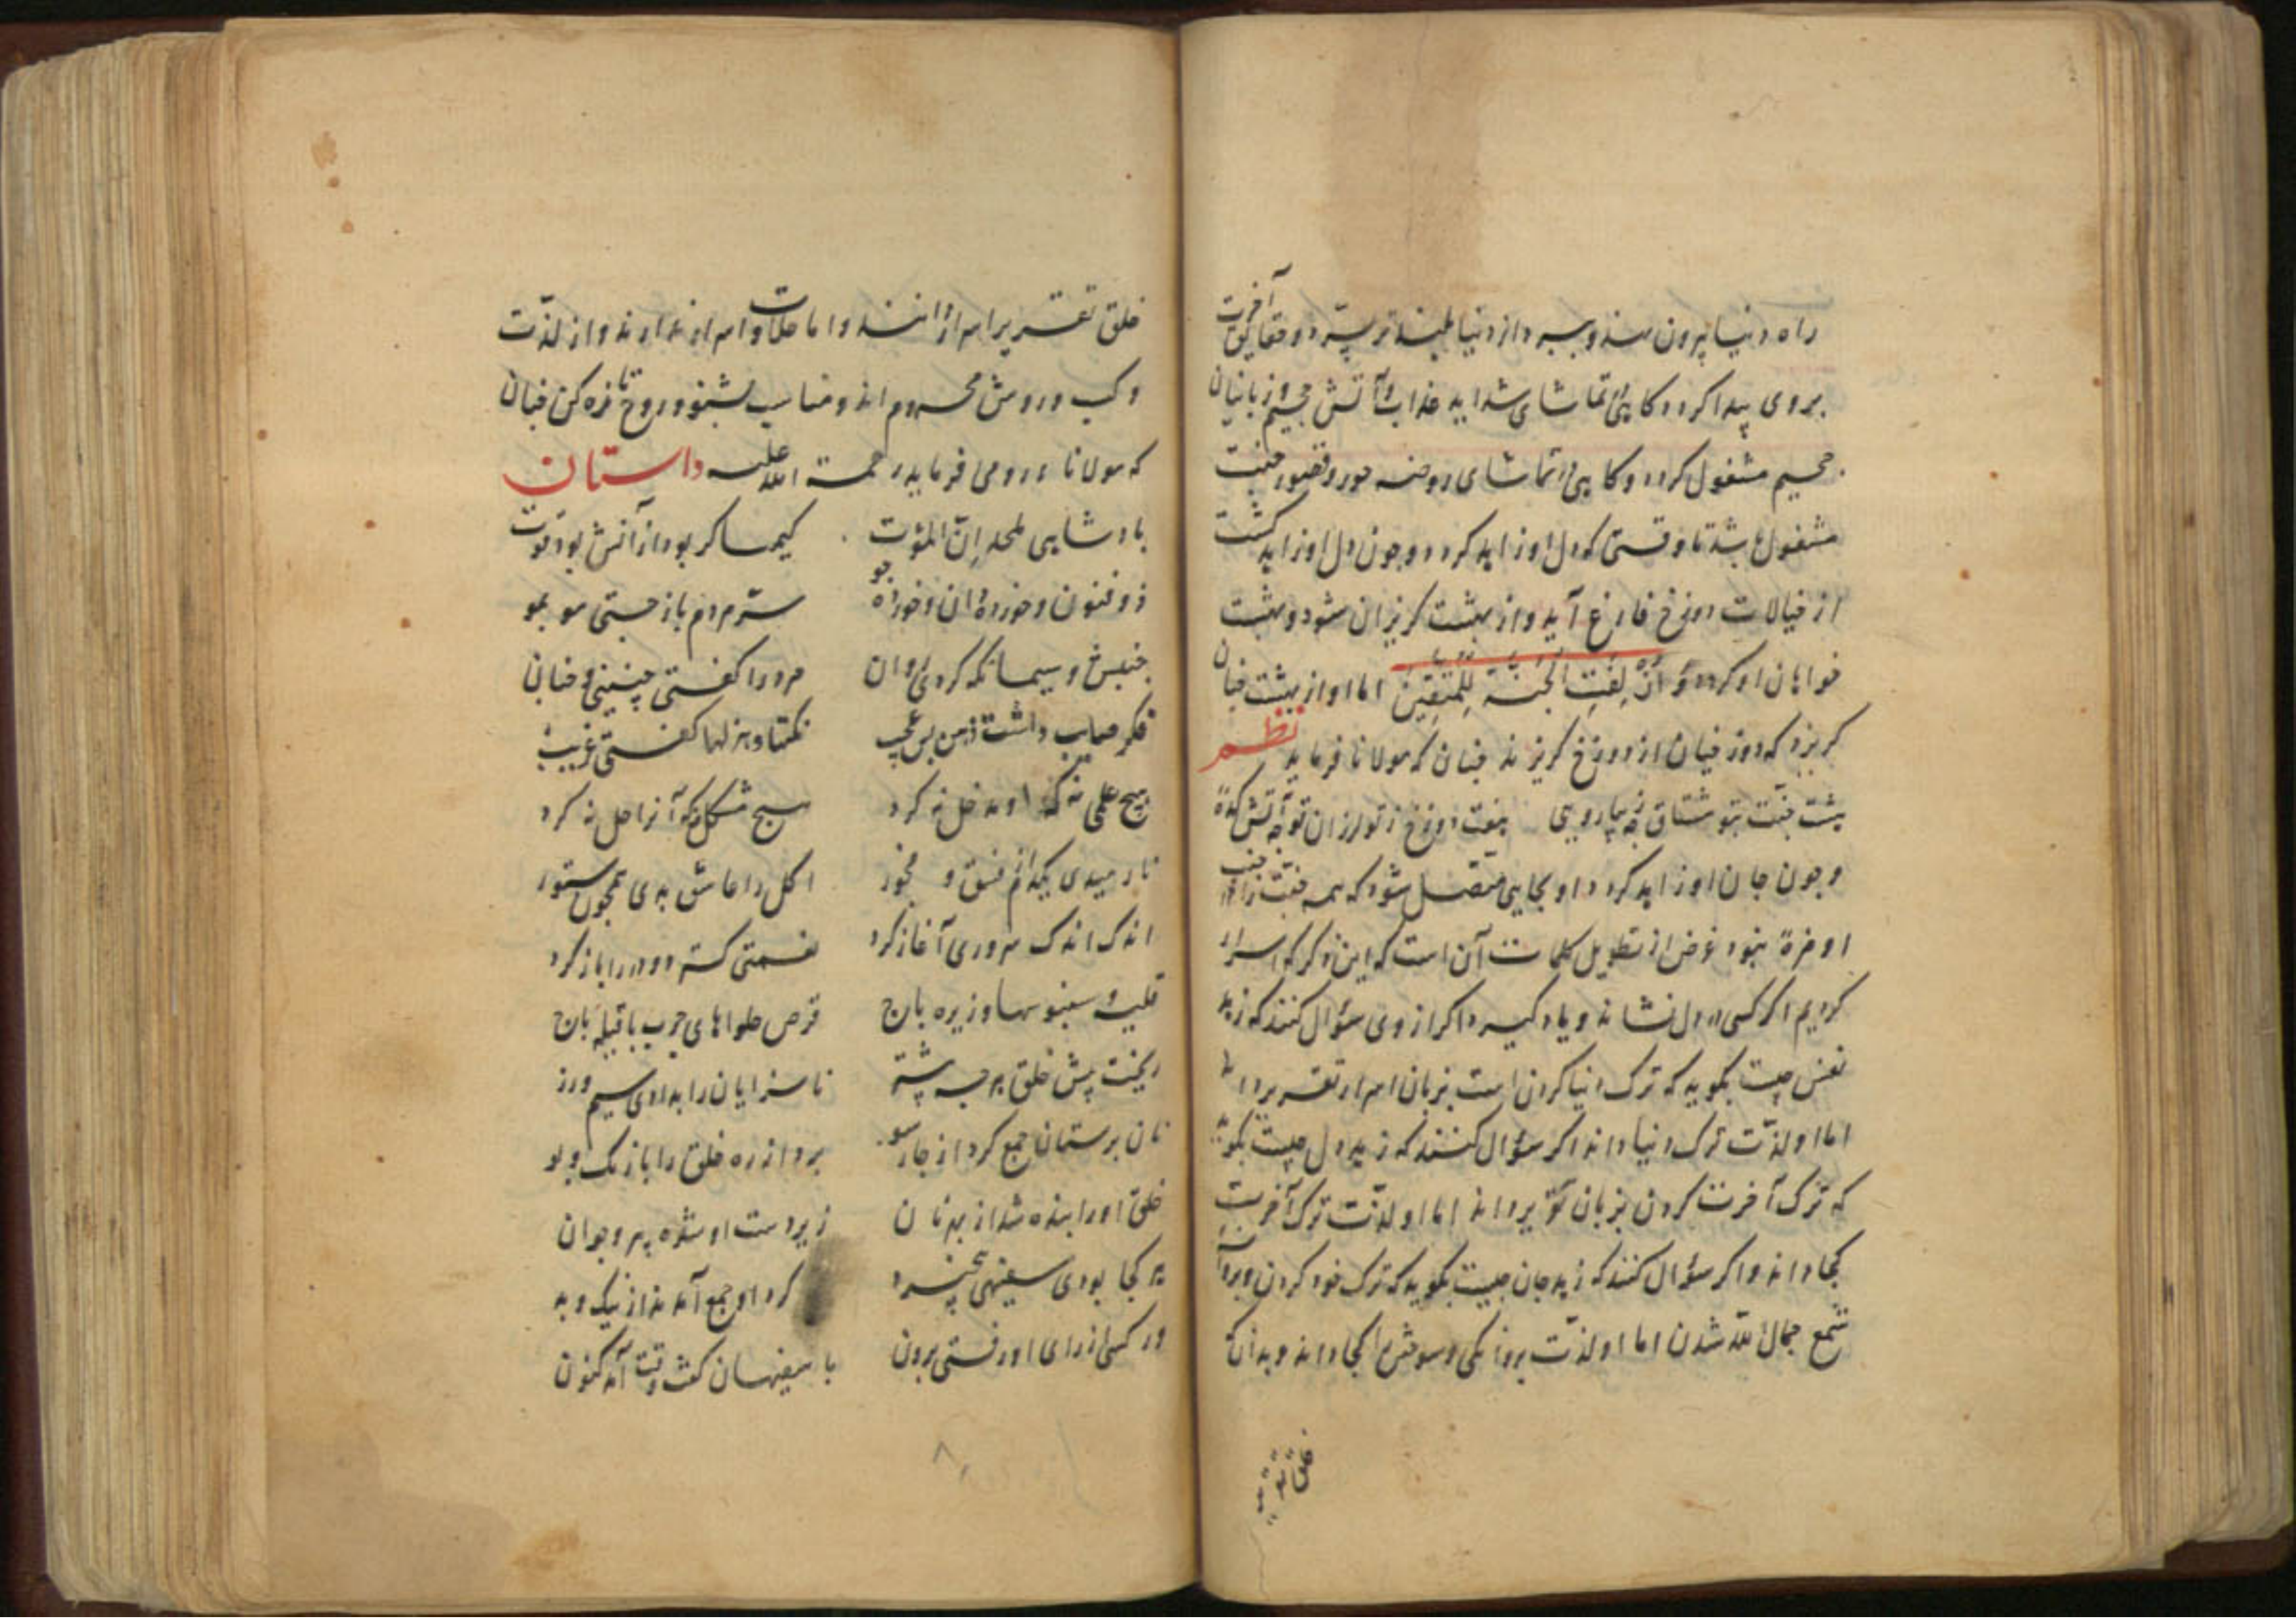 راه دنیا بیرون
بروی پیدا کردد کاهی تماشای شداید عذاب و آتش جحیم و زبانیان
جحیم مشغول کردد و کاهی تماشای روضه حور و قصور جنت
مشغول باشد تا وقتی که دل او زاید کردد و چون دل او زاید کشت
از خیالات دوزخ فارغ آید و از بهشت کریزان شود و بهشت
خواهان او کردد وَ اُزْلِفَتِ الْجَنَّةُ لِلْمُتَّقِينَ اما او از بهشت چنان
کریزد که دوزخیان از دوزخ کریزند چنان که مولانا فرماید نظم
هشت جنت بتو مشتاق چه زیبا رویی هفت دوزخ ز تو لرزان تو چه آتشکدهٔ
و چون جان او زاید کردد او بجایی متصل شود که همه جنت
او مزهٔ نبود غرض از تطویل کلمات آن است که این ذکر که اسرار
کردیم اکر کسی در دل نشاند و یاد کیرد اکر از وی سؤال کنند که زهد
نفس چیست بکوید که ترک دنیا کردن است بزبان اسرار تقریر داند
اما او لذّت ترک دنیا داند اکر سؤال کنند که زهد دل چیست بکوید
که ترک آخرت کردن بزبان تقریر داند اما او لذّت ترک آخرت
کجا داند و اکر سؤال کنند که زهد جان چیست بکوید که ترک خود کردن و پروانهٔ
شمع جمال الله شدن اما او لذّت پروانکی و سوختن را کجا داند و بدانک
خلق تقریر
خلق تقریر اسرار دانند و اما حلاوت اسرار ندارند و از لذّت
و کسب و روش محروم اند و مناسب بشنو و روح تازه کن چنان
که مولانا رومی فرماید رحمة الله علیه داستان
بادشاهی ملحد
کیمیاکر بود از آتش بود قوت
ذو فنون و خورده دان و خورده جو
سرّ مردم باز جستی مو بمو
جنبش و سیما نکه کردی روان
مرد را کفتی چنینی و چنان
فکر صایب داشت ذهن بس عجیب
نکتها و هزلها کفتی غریب
هیچ علمی نه که او مدخل نه کرد
هیچ مشکل نه که آنرا حل نه کرد
فسق و فجور
اندک اندک سروری آغاز کرد
نعمتی کسترد و در را باز کرد
قلیه و سنبوسها و زیره باج
قرص حلواهای چرب با قیله باج
ریخت پیش خلق هر چه پشتر
ناسزایان را بدادی سیم و زر
نان پرستان جمع کرد از چار سو
برد از ره خلق را با رنک و بو
خلق او را بنده شد از بهر نان
زیر دست او شده پیر و جوان
هر کجا بودی سفیهی بیخرد
کرد او جمع آمدند از نیک و بد
ور کسی از رای او رفتی برون
با سفیهان کفت وقت آمد کنون